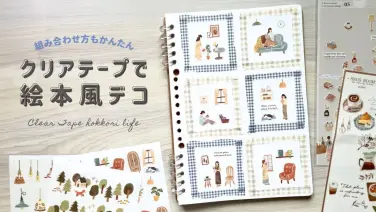 組み合わせ方もかんたん
クリアテープで
絵本風デコ
Clear Tape hokkori life